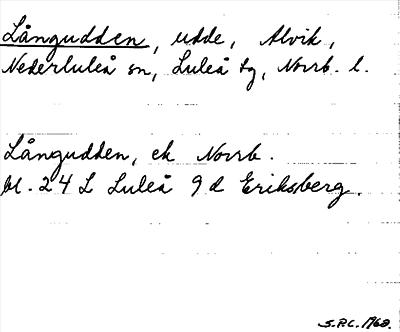 Långudden, udde, Alvik,
Nederluleå sn, Luleå tg, Norrb. l.
Långudden, ek Norrb.
bl. 24 L Luleå 9 d Eriksberg.
S.P.C. 1968.